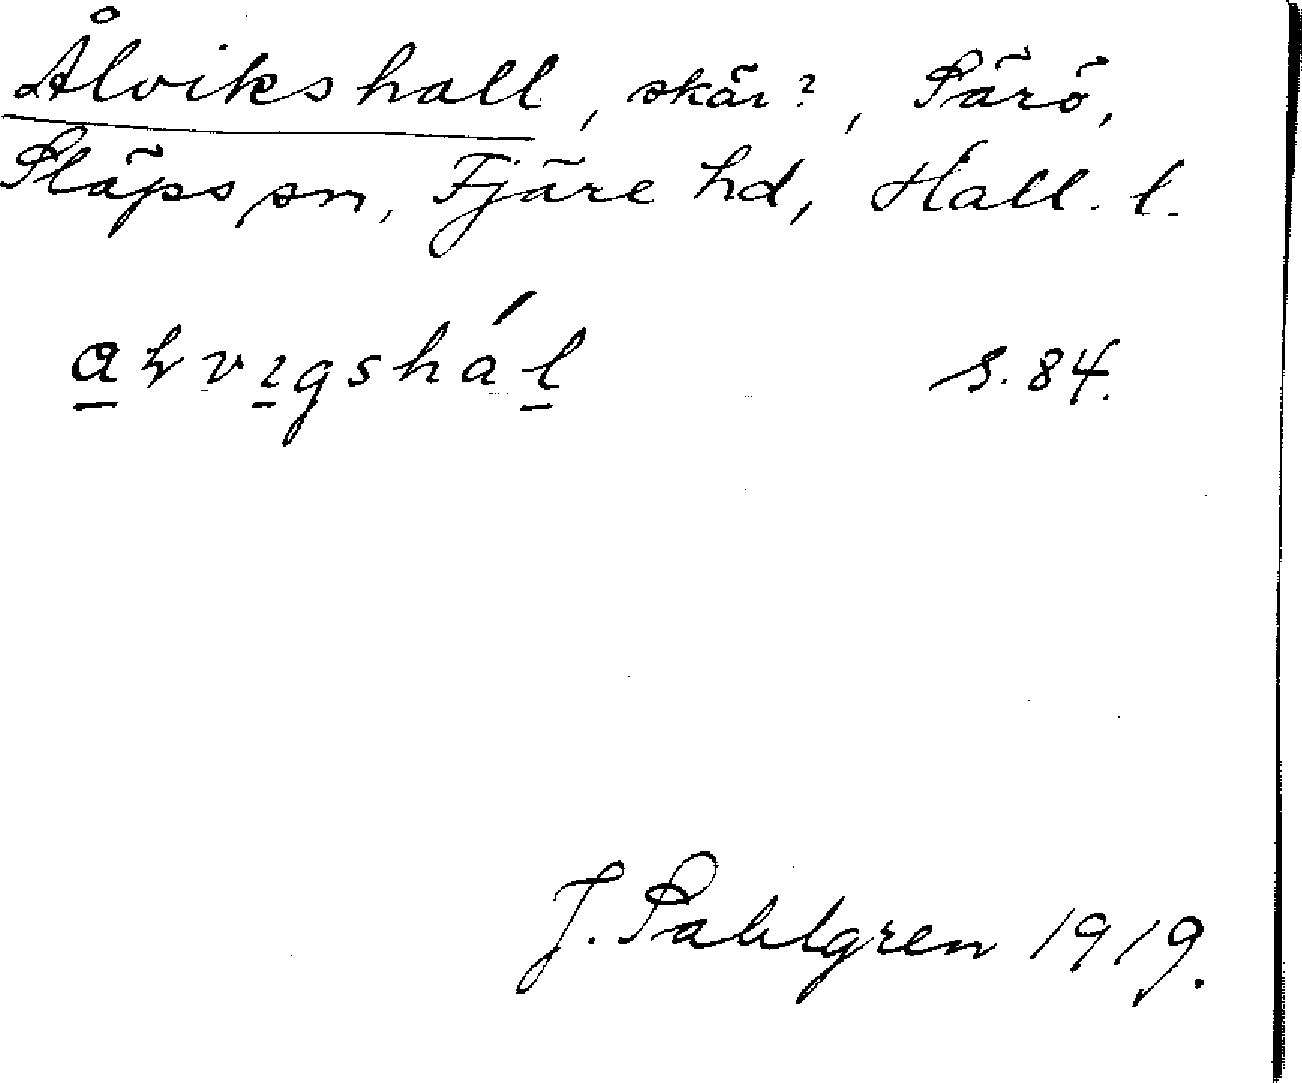 Ålvikshall, skär?, Särö,
Släps sn, Fjäre hd, Hall. l.
s. 84.
J. Sahlgren 1919.